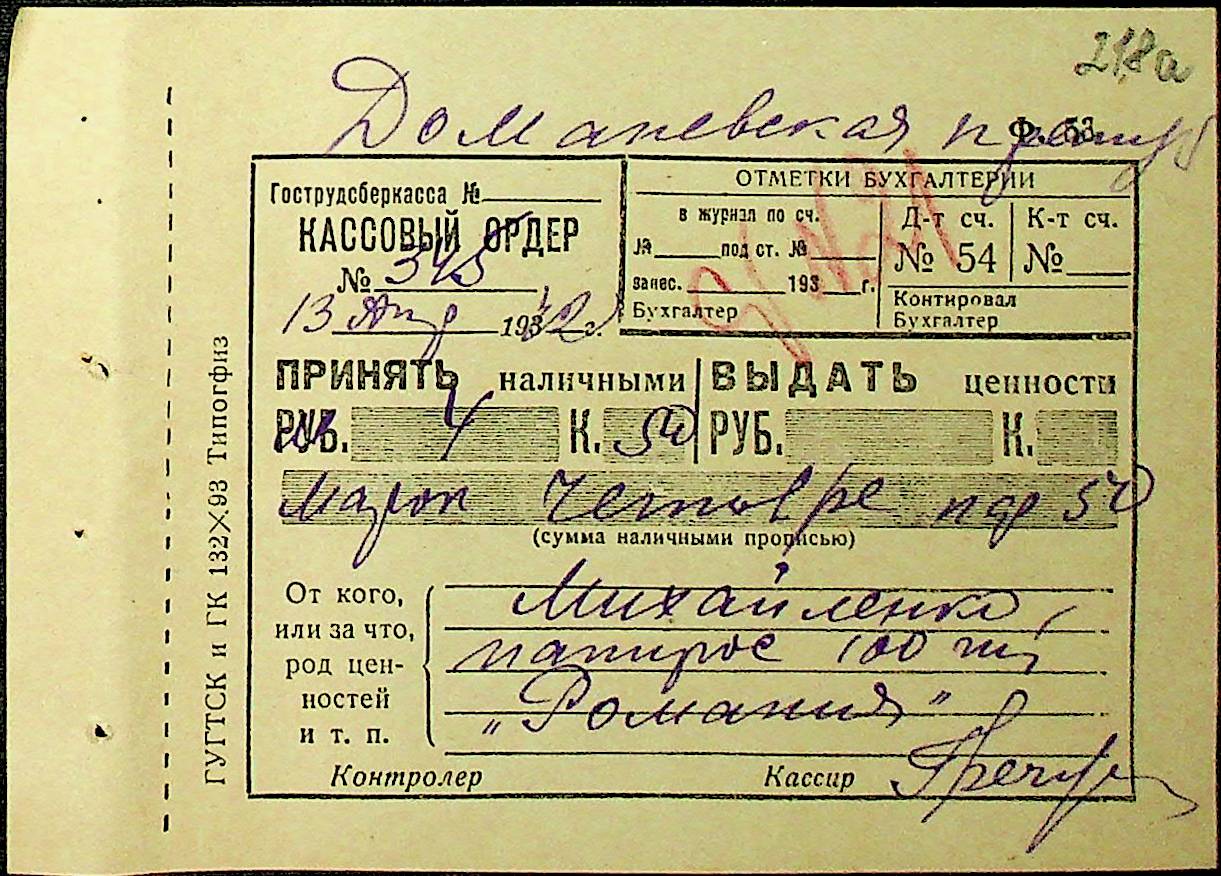 218а
Доманевская
Ф. 53
Гострудсберкасса №
КАССОВЫЙ ОРДЕР
№ 345
13 Апр 1942 г.
ОТМЕТКИ БУХГАЛТЕРИИ
в журнал по сч.
№ под ст. №
занес. 193 г.
Бухгалтер
Д-т сч.
№ 54
К-т сч.
№
Контировал
Бухгалтер
ПРИНЯТЬ наличными
РУБ. 4 К. 50
ВЫДАТЬ ценности
РУБ. К.
марок Четыре 50
(сумма наличными прописью)
От кого,
или за что,
род цен-
ностей
и т. п.
Михайленко,
папирос 100 шт,
„Романия"
Контролер
Кассир
ГУГТСК и ГК 132Х.93 Типогфиз